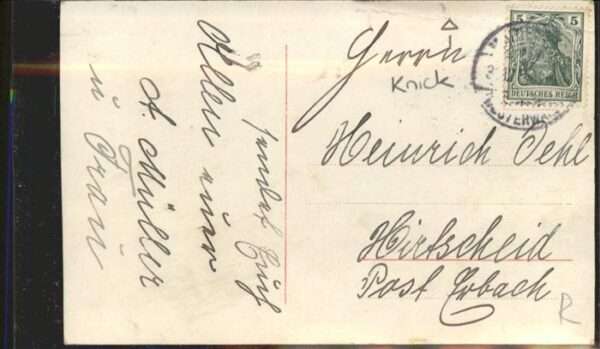 Herrn
Knick
Heinrich Oehl
Hirtscheid
Post Erbach
R
5 5
DEUTSCHES REICH
WESTERWALD
sendet Euch
Allen nur
A Müller
u Frau